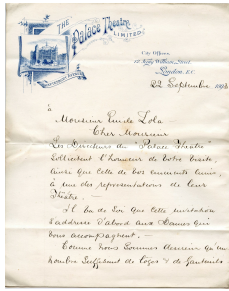 THE Palace Theatre
LIMITED
City Offices,
London, E.C.
22 Septembre 1893
à
Monsieur Emile Zola
Cher Monsieur
Les Directeurs du "Palace Theatre"
sollicitent l'honneur de votre visite,
ainsi que celle de vos éminents amis,
à une des representations de leur
Théatre.
Il va de soi que cette invitation
s'adresse d'abord aux Dames qui
vous accompagnent.
Comme nous sommes desireux qu'un
nombre suffisant de loges & de fauteuils